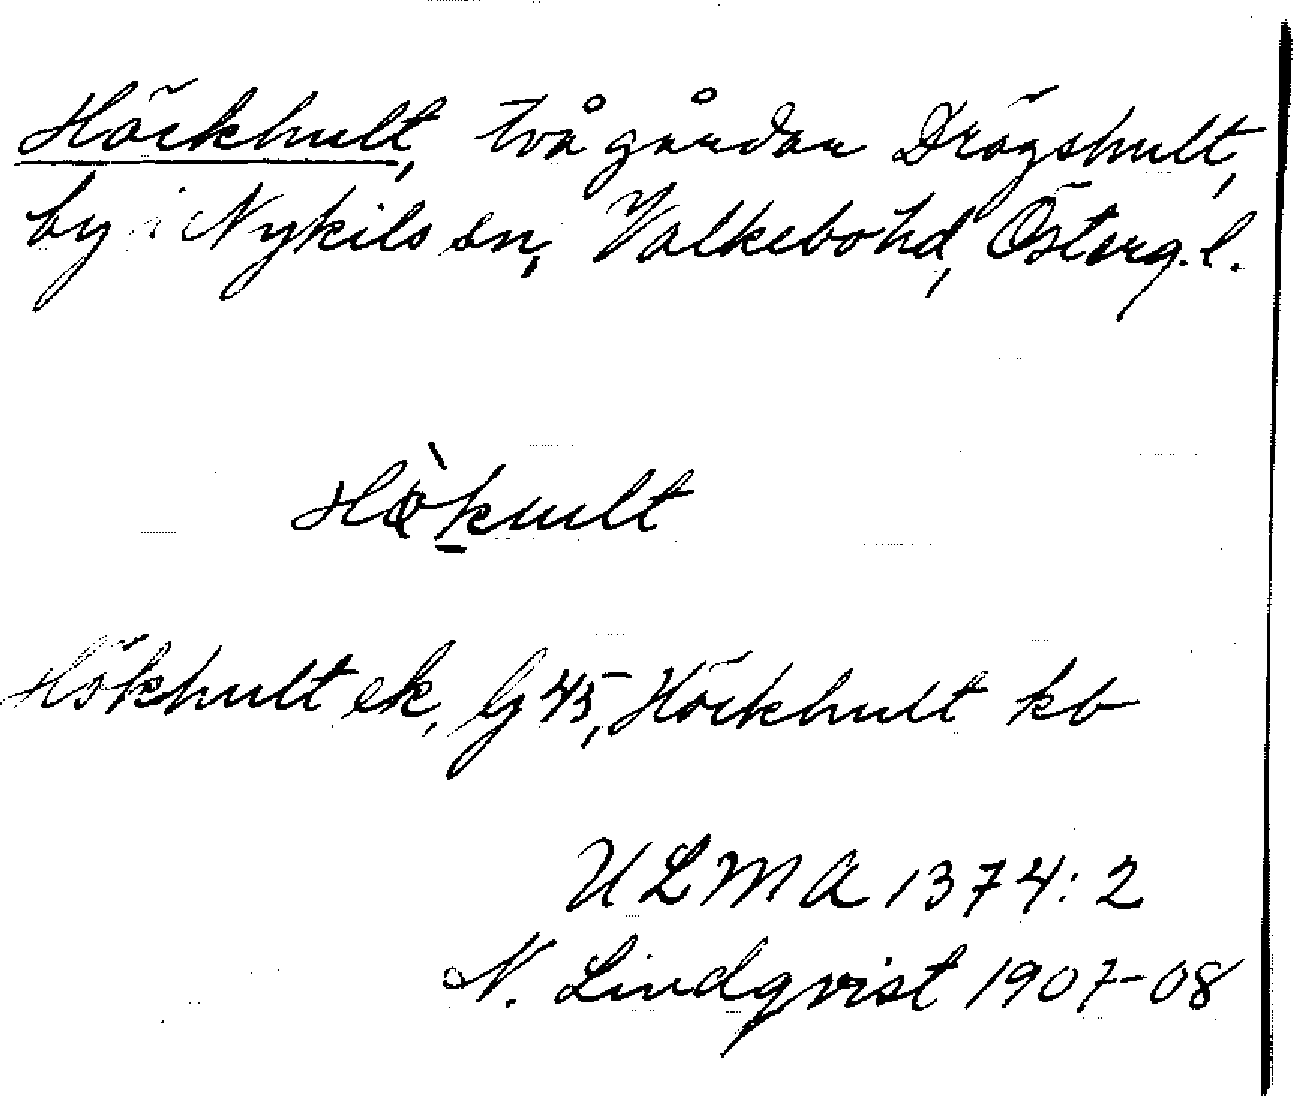 Höckhult, två gårdar Drögshult,
by i Nykils sn, Valkebo hd, Österg. l.
Hökult
Hökhult ek, G 45, Höckhult kb
ULMA 1374:2
N. Lindqvist 1907-08